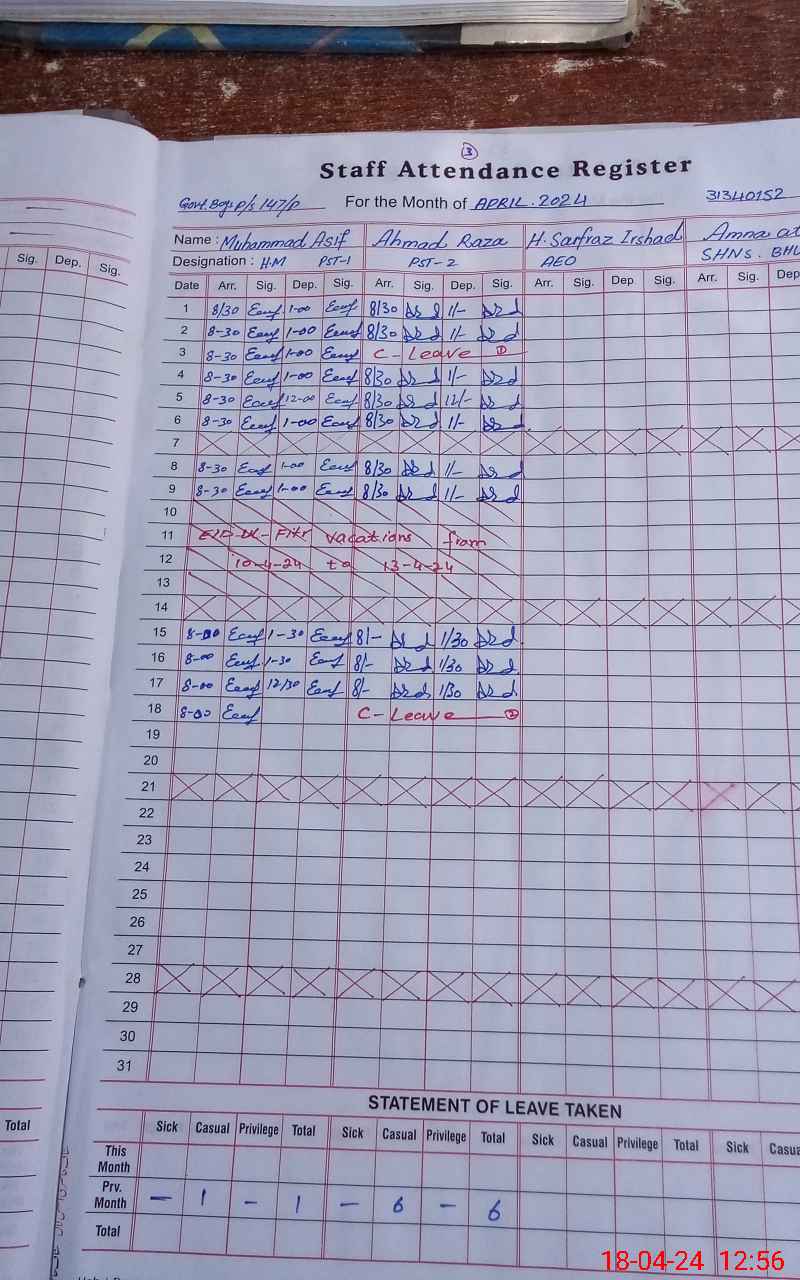 3
Staff Attendance Register
Govt. Boys P/S 147/P For the Month of APRIL. 2024 31340152
Name : Muhammad Asif Ahmad Raza H. Sarfraz Irshad Amna
Designation : HM PST-1 PST-2 AEO SHNS. BHU
Sig. Dep. Sig.
Date Arr. Sig. Dep. Sig. Arr. Sig. Dep. Sig. Arr. Sig. Dep Sig. Arr. Sig. Dep
1 8/30 1-00 8/30 1/-
2 8-30 1-00 8/30 1/-
3 8-30 1-00 C-Leave 1
4 8-30 1-00 8/30 1/-
5 8-30 12-00 8/30 12/-
6 8-30 1-00 8/30 1/-
7
8 8-30 1-00 8/30 1/-
9 8-30 1-00 8/30 1/-
10
11 EID-UL-Fitr vacations from
12 10-4-24 to 13-4-24
13
14
15 8-00 1-30 8/- 1/30
16 8-00 1-30 8/- 1/30
17 8-00 12/30 8/- 1/30
18 8-00 C-Leave 2
19
20
21
22
23
24
25
26
27
28
29
30
31
STATEMENT OF LEAVE TAKEN
Total
Sick Casual Privilege Total Sick Casual Privilege Total Sick Casual Privilege Total Sick Casua
This Month
Prv. Month — 1 - 1 — 6 - 6
Total
18-04-24 12:56